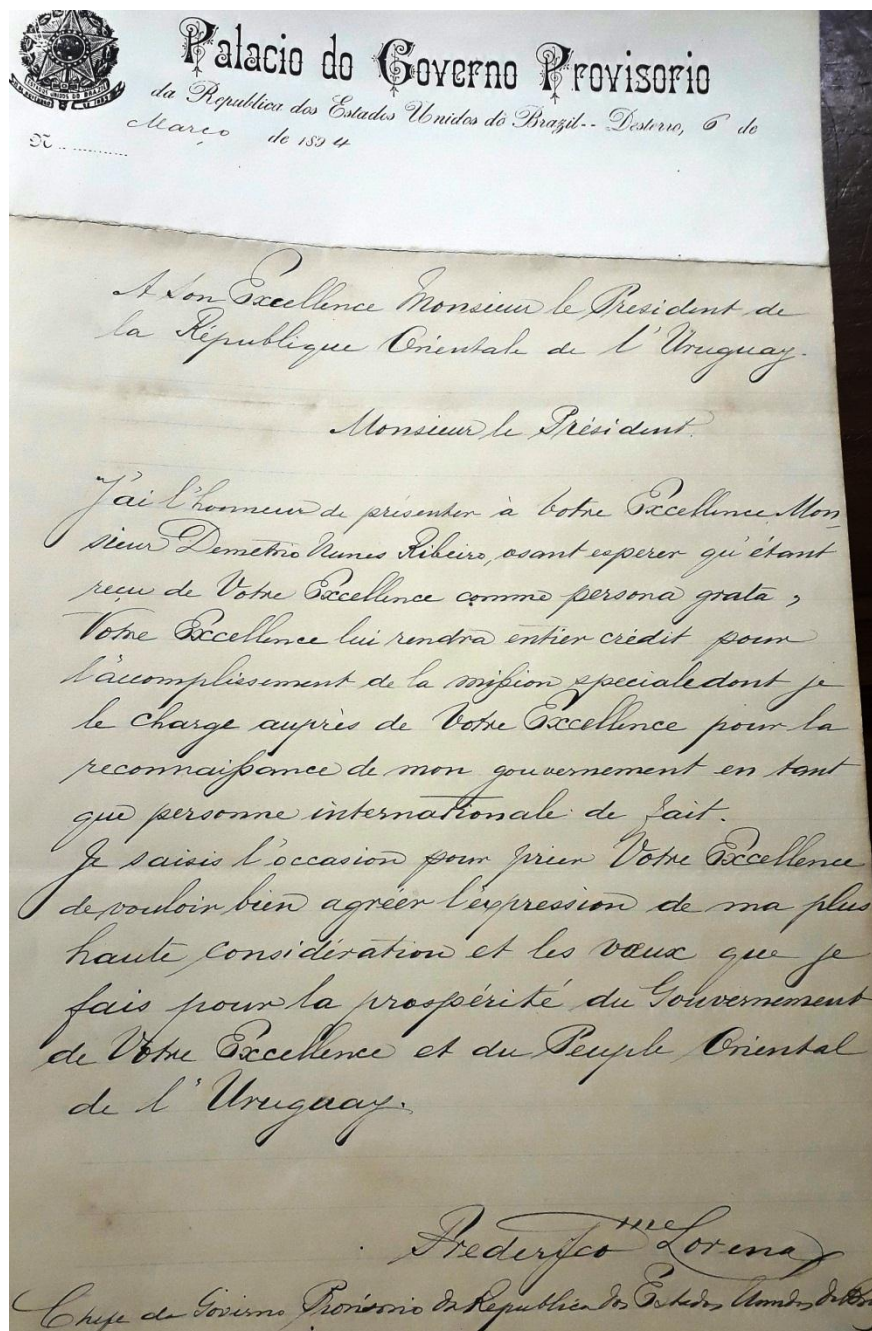 Palacio do Governo Provisorio
da Republica dos Estados Unidos do Brazil -- Desterro, 6 de
Março de 1894
N
A Son Excellence Monsieur le President de
la République Orientale de l'Uruguay.
Monsieur le Président.
J'ai l'honneur de présenter à Votre Excellence Mon-
sieur Demetrio Nunes Ribeiro, osant esperer qu'étant
reçu de Votre Excellence comme persona grata,
Votre Excellence lui rendra entier crédit pour
l'accomplissement de la mission speciale dont je
le charge auprès de Votre Excellence pour la
reconnaissance de mon gouvernement en tant
que personne internationale de fait.
Je saisis l'occasion pour prier Votre Excellence
de vouloir bien agréer l'expression de ma plus
haute considération et les vœux que je
fais pour la prospérité du Gouvernement
de Votre Excellence et du Peuple Oriental
de l'Uruguay.
Frederico Lorena
Chefe do Governo Provisorio da Republica dos Estados Unidos do